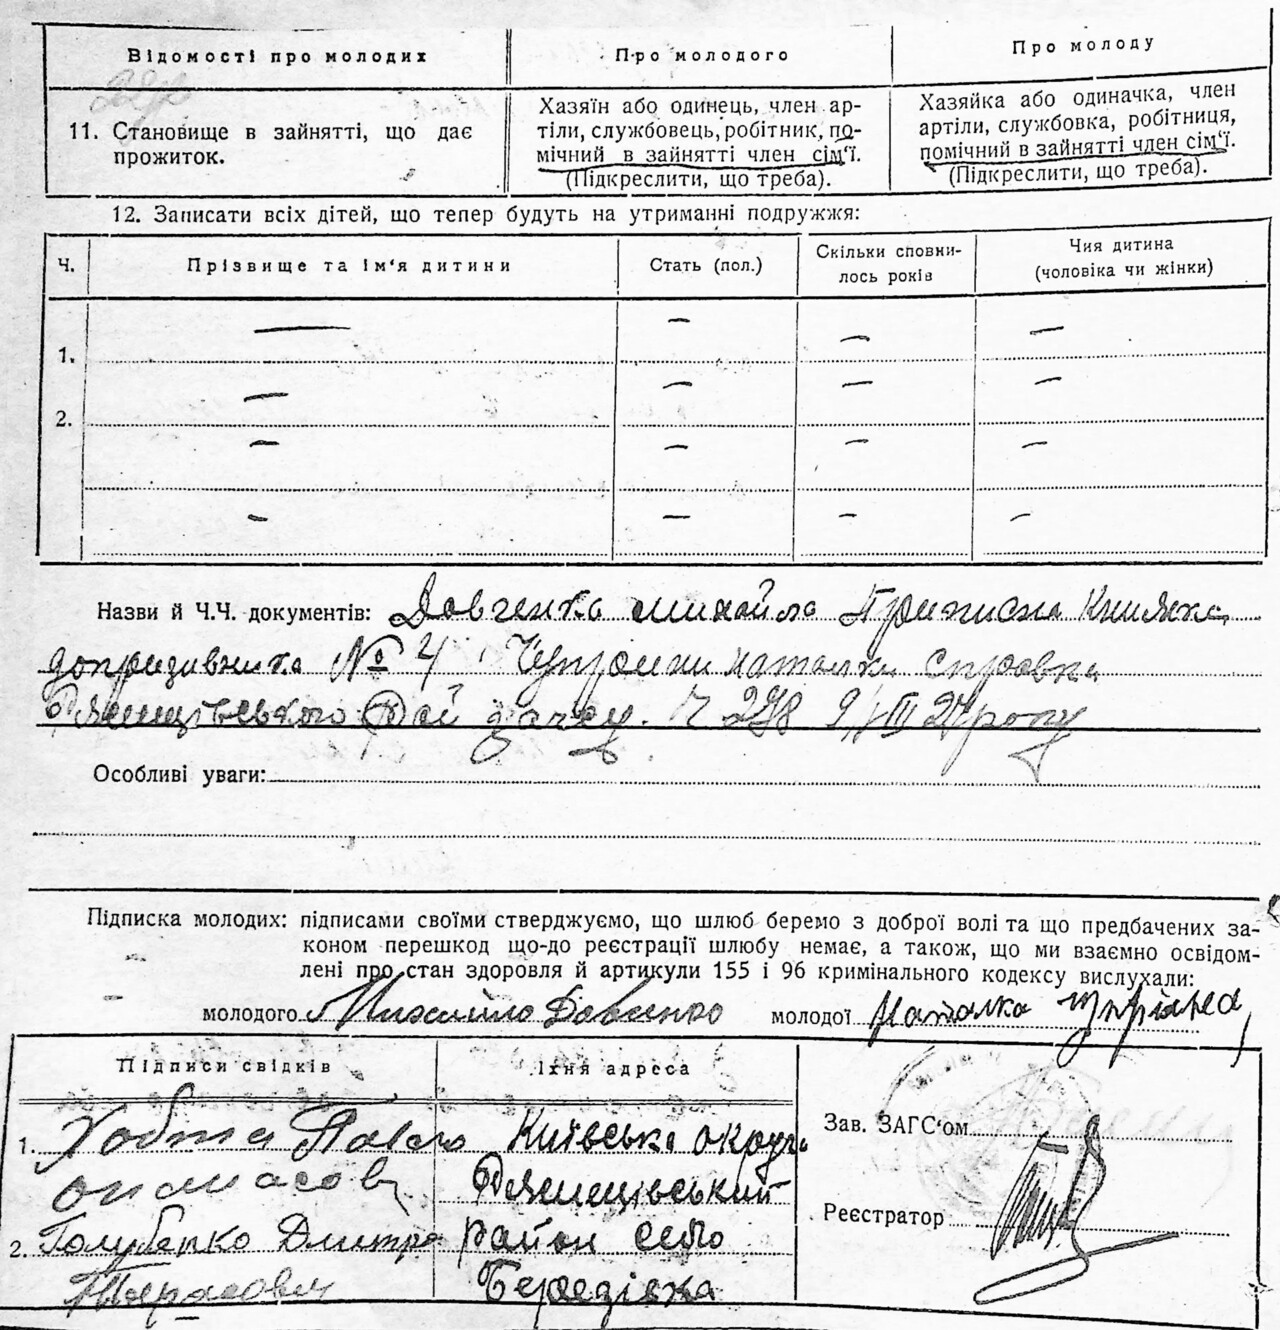 Відомості про молодих
Про молодого
Про молоду
11. Становище в зайнятті, що дає
прожиток.
Хазяїн або одинець, член ар-
тіли, службовець, робітник, по-
мічний в зайнятті член сім'ї.
(Підкреслити, що треба).
Хазяйка або одиначка, член
артіли, службовка, робітниця,
помічний в зайнятті член сім'ї.
(Підкреслити, що треба).
12. Записати всіх дітей, що тепер будуть на утриманні подружжя:
Ч.
Прізвище та ім'я дитини
Стать (пол.)
Скільки сповни-
лось років
Чия дитина
(чоловіка чи жінки)
1. — — — —
2. — — — —
— — — —
— — — —
Назви й Ч.Ч. документів: Довченка Михайла Приписна Книжка
допризивника № 4 Наталки справка
Ч 278 9/III 24 року
Особливі уваги:
Підписка молодих: підписами своїми стверджуємо, що шлюб беремо з доброї волі та що предбачених за-
коном перешкод що-до реєстрації шлюбу немає, а також, що ми взаємно освідом-
лені про стан здоровля й артикули 155 і 96 кримінального кодексу вислухали:
молодого Михайло Довченко молодої Наталка
Підписи свідків
Їхня адреса
1. Хобта Павло
2. Голубенко Дмитро
Тарасович
Київська округа
район село
Зав. ЗАГС'ом
Реєстратор